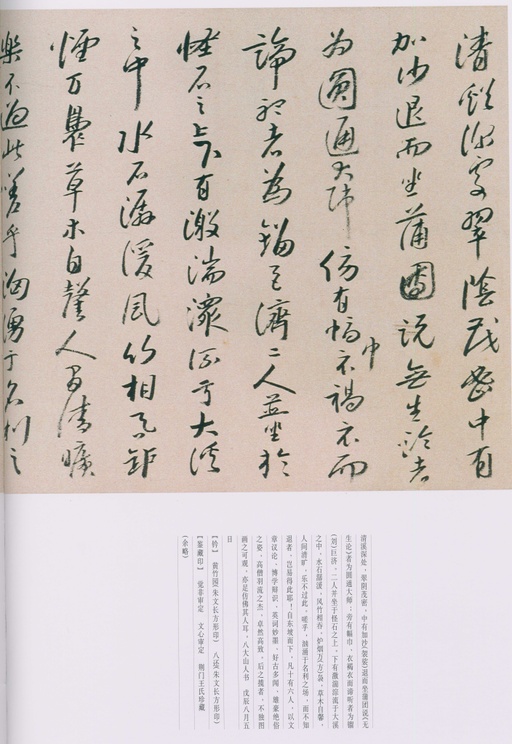 清谿深處翠陰茂密中有
加沙退而坐蒲團説無生論者
为圓通大師傍有幅巾衣褐衣而
諦聽者為錙巨濟二人並坐於
怪石之上下有激湍潀流于大溪
之中水石潺湲風竹相吞鈩
煙万裊草木自馨人間清曠
樂不過此嗟乎洶湧于名利之
清溪深处，翠阴茂密，中有加沙〔袈裟〕退而坐蒲团说《无
生论》者为圆通大师；旁有幅巾、衣褐衣而谛听者为锱
〔刘〕巨济。二人并坐于怪石之上，下有激湍潀流于大溪
之中，水石潺湲，风竹相吞，炉烟万〔方〕袅，草木自馨，
人间清旷，乐不过此。嗟乎，汹涌于名利之场，而不知
退者，岂易得此耶！自东坡而下，凡十有六人，以文
章议论，博学辩识，英词妙墨，好古多闻，雄豪绝俗
之姿，高僧羽流之杰，卓然高致，后之揽者，不独图
画之可观，亦足仿佛其人耳。八大山人书 戊辰八月五
日
【钤】 黄竹园(朱文长方形印) 八还(朱文长方形印)
【鉴藏印】 觉非审定 文心审定 荆门王氏珍藏
(余略)